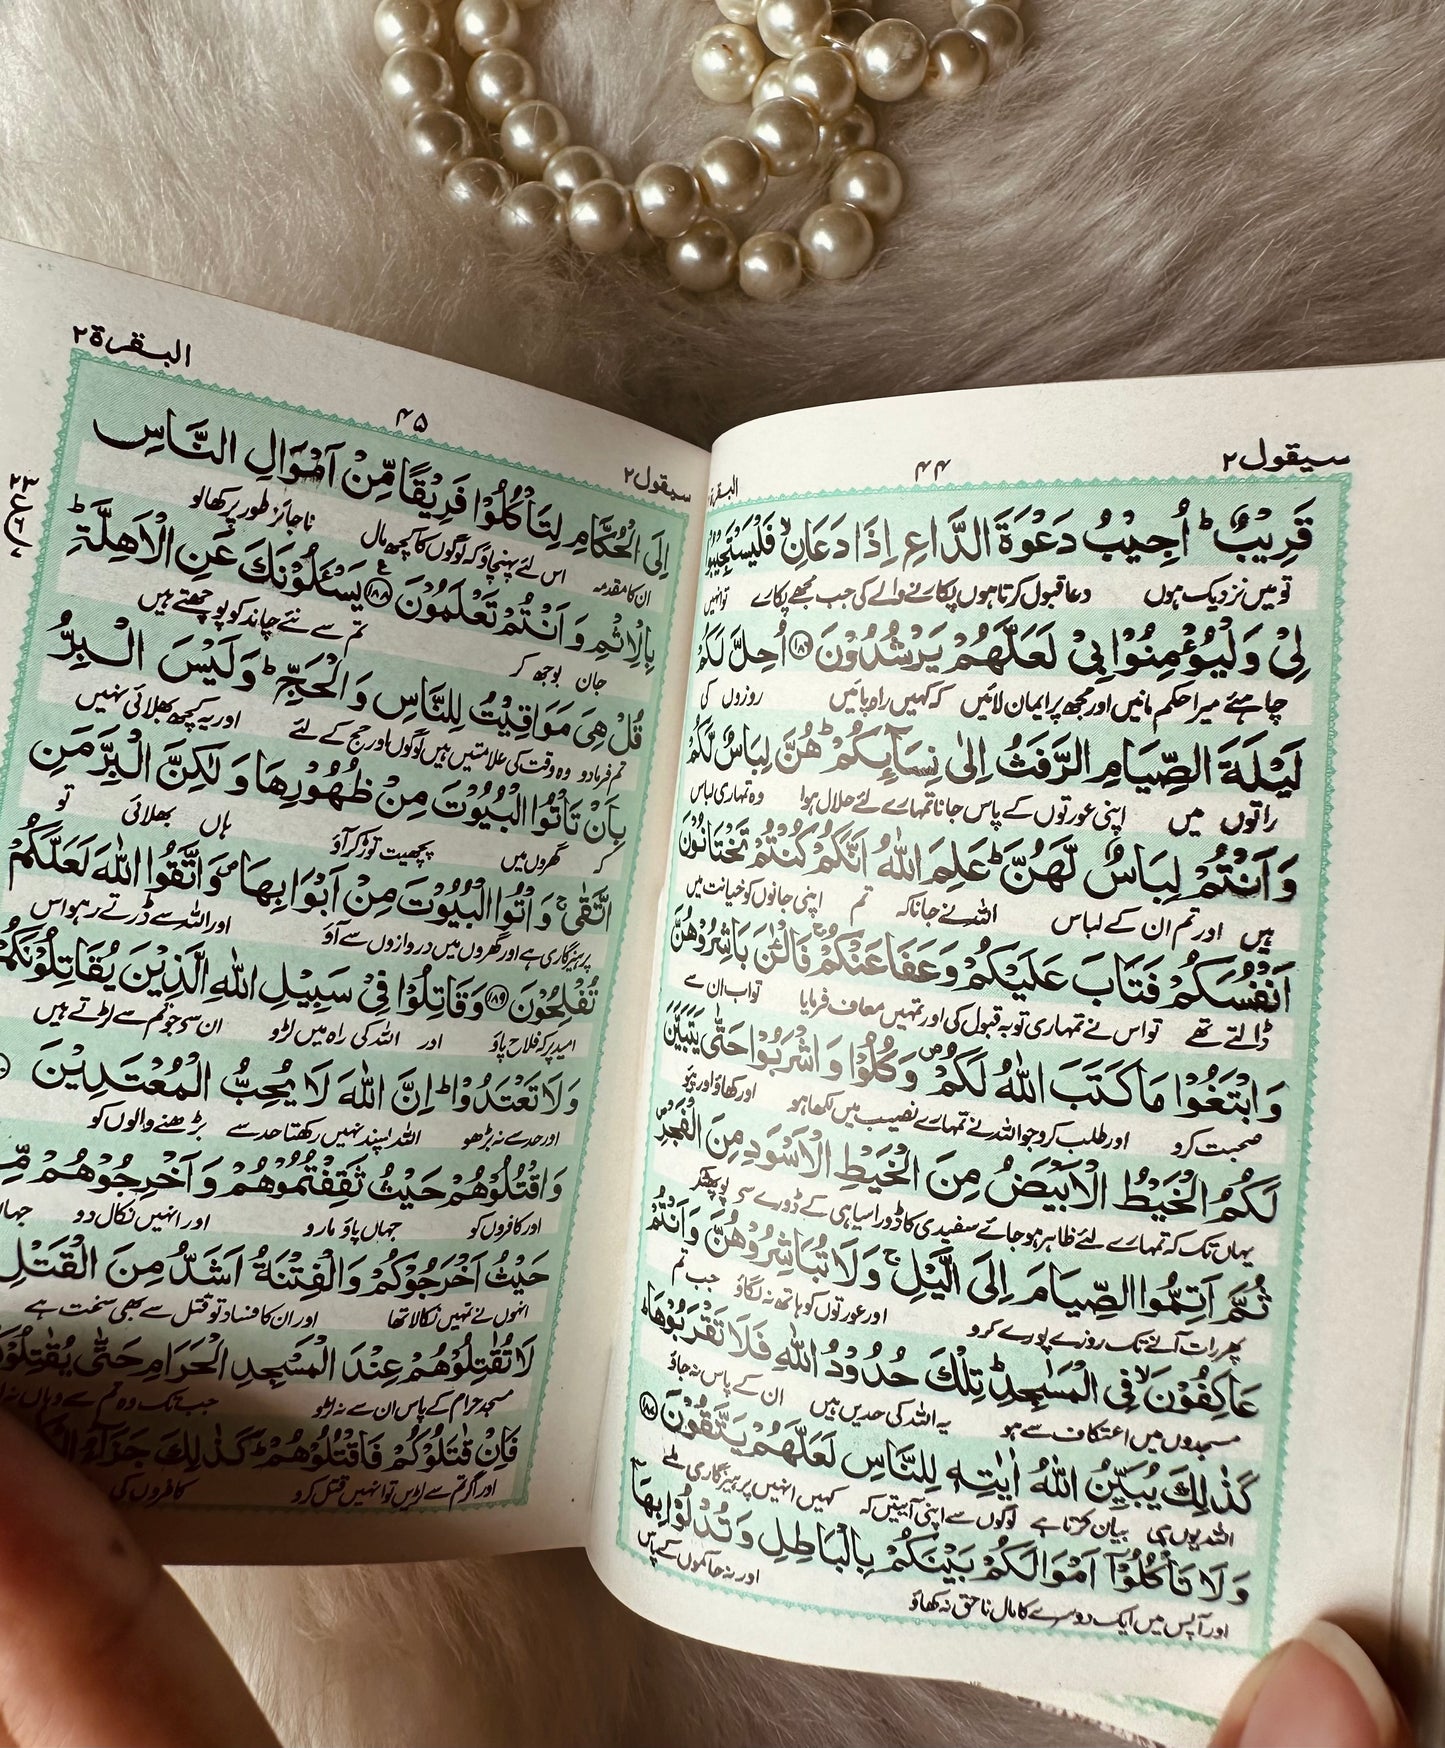 سیقول ۲
۴۴
البقرۃ
قَرِیْبٌ ؕ اُجِیْبُ دَعْوَةَ الدَّاعِ اِذَا دَعَانِ ۙ فَلْیَسْتَجِیْبُوْا
تو میں نزدیک ہوں دعا قبول کرتا ہوں پکارنے والے کی جب مجھے پکارے تو انہیں
لِیْ وَلْیُؤْمِنُوْا بِیْ لَعَلَّهُمْ یَرْشُدُوْنَ ﴿۱۸۶﴾ اُحِلَّ لَكُمْ
چاہئے میرا حکم مانیں اور مجھ پر ایمان لائیں کہ کہیں راہ پائیں روزوں کی
لَیْلَةَ الصِّیَامِ الرَّفَثُ اِلٰی نِسَآىِٕكُمْ ؕ هُنَّ لِبَاسٌ لَّكُمْ
راتوں میں اپنی عورتوں کے پاس جانا تمہارے لئے حلال ہوا وہ تمہاری لباس
وَ اَنْتُمْ لِبَاسٌ لَّهُنَّ ؕ عَلِمَ اللّٰهُ اَنَّكُمْ كُنْتُمْ تَخْتَانُوْنَ
ہیں اور تم ان کے لباس اللہ نے جانا کہ تم اپنی جانوں کو خیانت میں
اَنْفُسَكُمْ فَتَابَ عَلَیْكُمْ وَ عَفَا عَنْكُمْ ۚ فَالْـٰٔنَ بَاشِرُوْهُنَّ
ڈالتے تھے تو اس نے تمہاری توبہ قبول کی اور تمہیں معاف فرمایا تو اب ان سے
وَ ابْتَغُوْا مَا كَتَبَ اللّٰهُ لَكُمْ ۪ وَ كُلُوْا وَ اشْرَبُوْا حَتّٰی یَتَبَیَّنَ
صحبت کرو اور طلب کرو جو اللہ نے تمہارے نصیب میں لکھا ہو اور کھاؤ اور پیو
لَكُمُ الْخَیْطُ الْاَبْیَضُ مِنَ الْخَیْطِ الْاَسْوَدِ مِنَ الْفَجْرِ ۪
یہاں تک کہ تمہارے لئے ظاہر ہو جائے سفیدی کا ڈورا سیاہی کے ڈورے سے پو پھٹ کر
ثُمَّ اَتِمُّوا الصِّیَامَ اِلَی الَّیْلِ ۚ وَ لَا تُبَاشِرُوْهُنَّ وَ اَنْتُمْ
پھر رات آنے تک روزے پورے کرو اور عورتوں کو ہاتھ نہ لگاؤ جب تم
عٰكِفُوْنَ ۙ فِی الْمَسٰجِدِ ؕ تِلْكَ حُدُوْدُ اللّٰهِ فَلَا تَقْرَبُوْهَا ؕ
مسجدوں میں اعتکاف سے ہو یہ اللہ کی حدیں ہیں ان کے پاس نہ جاؤ
كَذٰلِكَ یُبَیِّنُ اللّٰهُ اٰیٰتِهٖ لِلنَّاسِ لَعَلَّهُمْ یَتَّقُوْنَ ﴿۱۸۷﴾
اللہ یوں ہی بیان کرتا ہے لوگوں سے اپنی آیتیں کہ کہیں انہیں پرہیزگاری ملے
وَ لَا تَاْكُلُوْۤا اَمْوَالَكُمْ بَیْنَكُمْ بِالْبَاطِلِ وَ تُدْلُوْا بِهَاۤ
اور آپس میں ایک دوسرے کا مال ناحق نہ کھاؤ اور نہ حاکموں کے پاس
سیقول ۲
۴۵
البقرۃ ۲
اِلَی الْحُكَّامِ لِتَاْكُلُوْا فَرِیْقًا مِّنْ اَمْوَالِ النَّاسِ
ان کا مقدمہ اس لئے پہنچاؤ کہ لوگوں کا کچھ مال ناجائز طور پر کھا لو
بِالْاِثْمِ وَ اَنْتُمْ تَعْلَمُوْنَ ﴿۱۸۸﴾ یَسْـَٔلُوْنَكَ عَنِ الْاَهِلَّةِ ؕ
جان بوجھ کر تم سے نئے چاند کو پوچھتے ہیں
قُلْ هِیَ مَوَاقِیْتُ لِلنَّاسِ وَ الْحَجِّ ؕ وَ لَیْسَ الْبِرُّ
تم فرمادو وہ وقت کی علامتیں ہیں لوگوں اور حج کے لئے اور یہ کچھ بھلائی نہیں
بِاَنْ تَاْتُوا الْبُیُوْتَ مِنْ ظُهُوْرِهَا وَ لٰكِنَّ الْبِرَّ مَنِ
کہ گھروں میں پچھیت توڑ کر آؤ ہاں بھلائی تو
اتَّقٰی ۚ وَ اْتُوا الْبُیُوْتَ مِنْ اَبْوَابِهَا ۪ وَ اتَّقُوا اللّٰهَ لَعَلَّكُمْ
پرہیزگاری ہے اور گھروں میں دروازوں سے آؤ اور اللہ سے ڈرتے رہو اس
تُفْلِحُوْنَ ﴿۱۸۹﴾ وَ قَاتِلُوْا فِیْ سَبِیْلِ اللّٰهِ الَّذِیْنَ یُقَاتِلُوْنَكُمْ
امید پر کہ فلاح پاؤ اور اللہ کی راہ میں لڑو ان سے جو تم سے لڑتے ہیں
وَ لَا تَعْتَدُوْا ؕ اِنَّ اللّٰهَ لَا یُحِبُّ الْمُعْتَدِیْنَ
اور حد سے نہ بڑھو اللہ پسند نہیں رکھتا حد سے بڑھنے والوں کو
وَ اقْتُلُوْهُمْ حَیْثُ ثَقِفْتُمُوْهُمْ وَ اَخْرِجُوْهُمْ مِّنْ
اور کافروں کو جہاں پاؤ مارو اور انہیں نکال دو جہاں
حَیْثُ اَخْرَجُوْكُمْ وَ الْفِتْنَةُ اَشَدُّ مِنَ الْقَتْلِ
انہوں نے تمہیں نکالا تھا اور ان کا فساد تو قتل سے بھی سخت ہے
لَا تُقٰتِلُوْهُمْ عِنْدَ الْمَسْجِدِ الْحَرَامِ حَتّٰی یُقٰتِلُوْ
مسجد حرام کے پاس ان سے نہ لڑو جب تک وہ تم سے وہاں نہ
فَاِنْ قٰتَلُوْكُمْ فَاقْتُلُوْهُمْ ؕ كَذٰلِكَ جَزَآءُ
اور اگر تم سے لڑیں تو انہیں قتل کرو کافروں کی